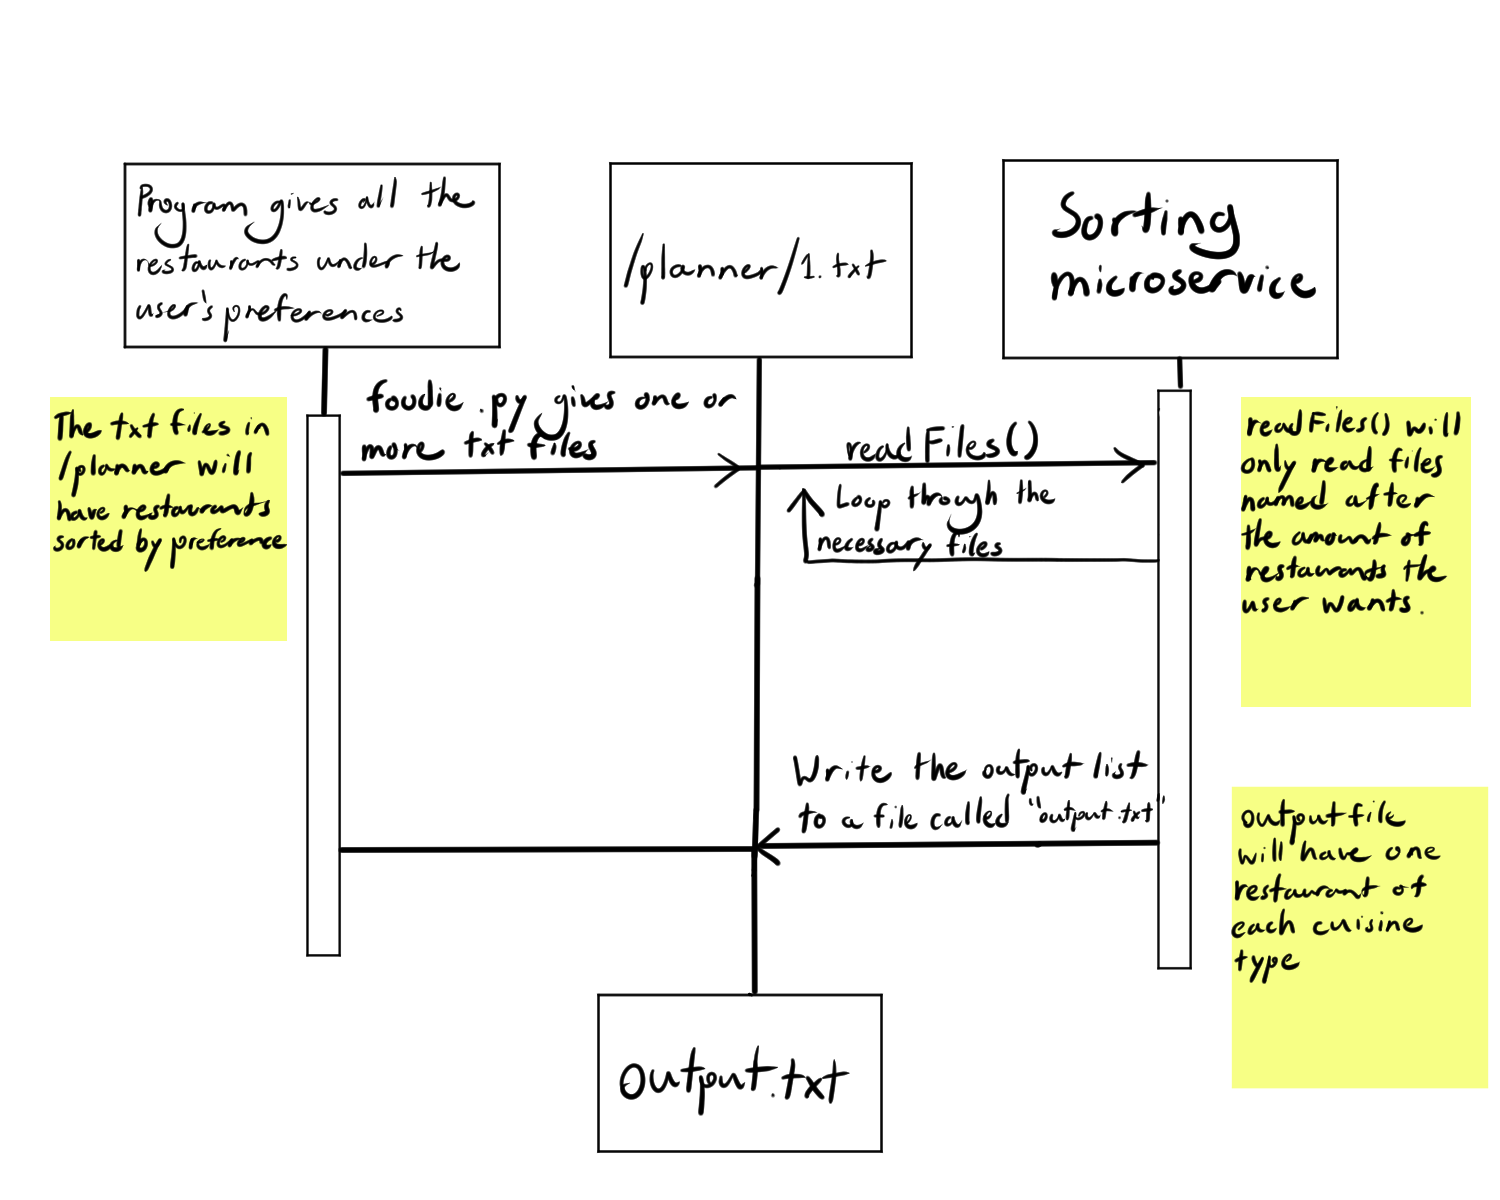 Program gives all the
restaurants under the
user's preferences
/planner/1.txt
Sorting
microservice
The txt files in
/planner will
have restaurants
sorted by preference
foodie.py gives one or
more txt files
readFiles()
Loop through the
necessary files
readFiles() will
only read files
named after
the amount of
restaurants the
user wants.
Write the output list
to a file called "output.txt"
output file
will have one
restaurant of
each cuisine
type
output.txt